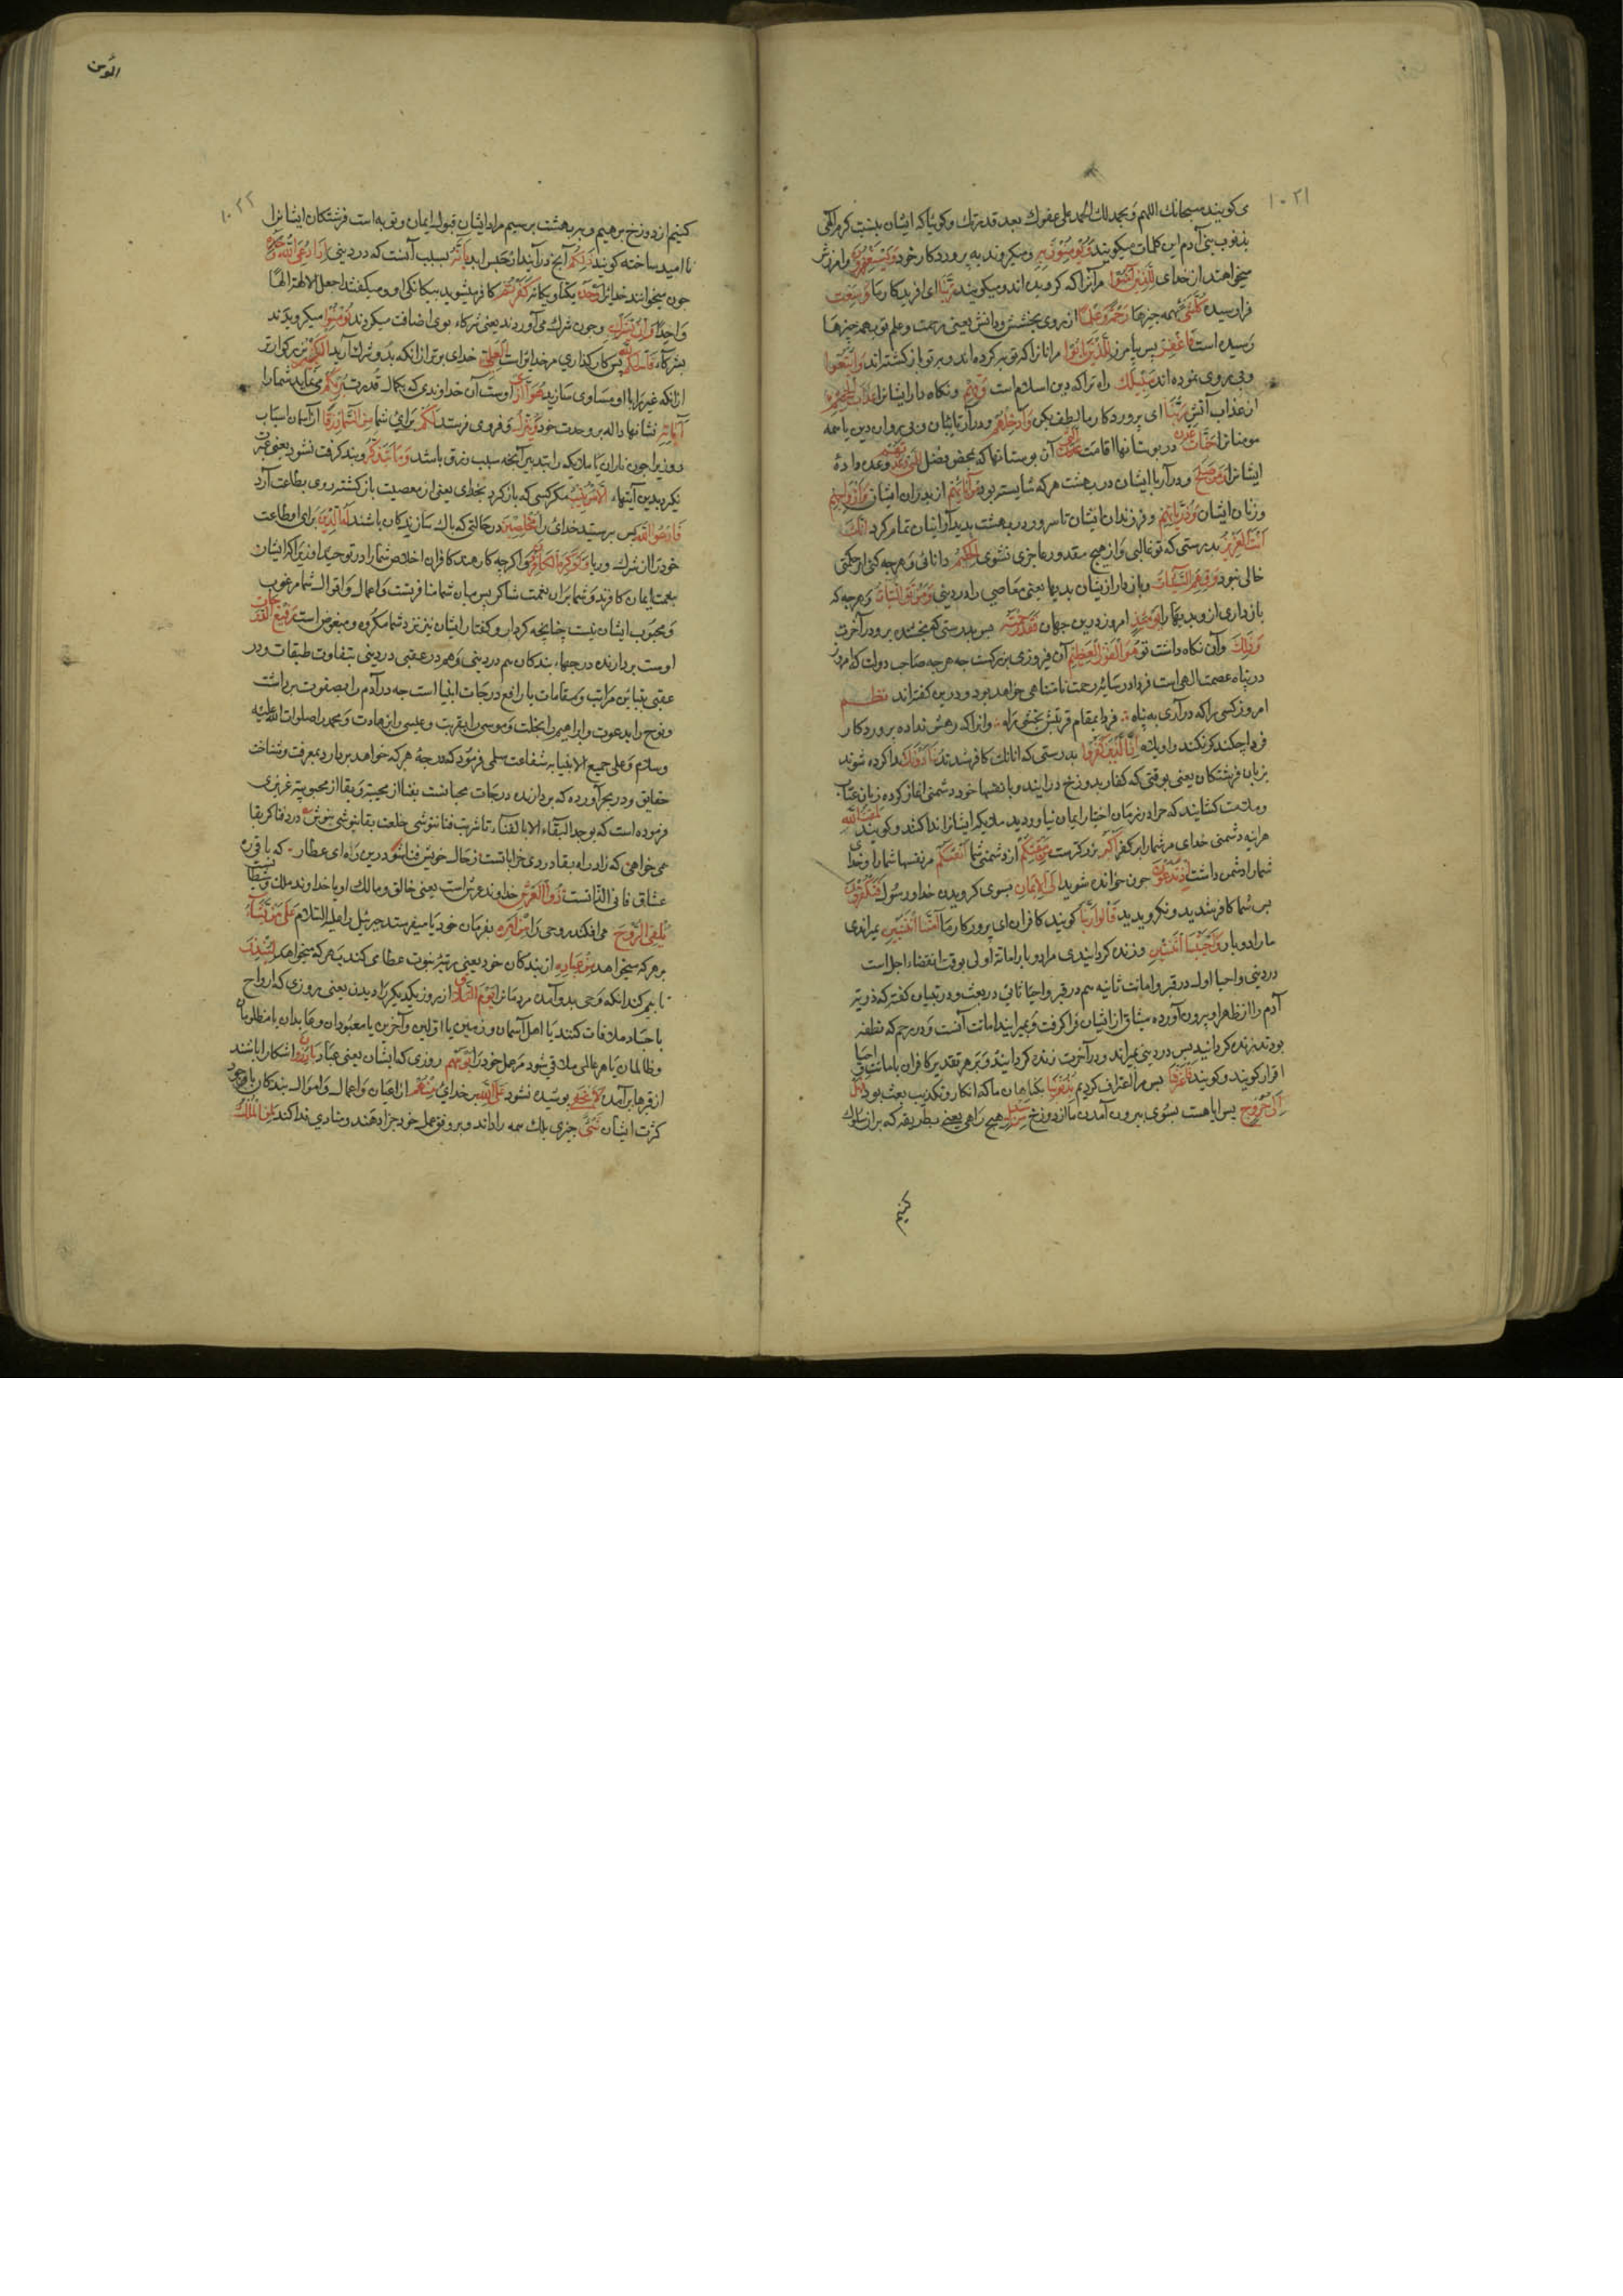 ۱۰۲۱
می گویند سبحانك اللهم وبحمدك لك الحمد علی عفوك بعد قدرتك وگوئیا که ایشان بنسبت کرم الهی
بذنوب بنی آدم این کلمات میگویند وَيُؤْمِنُونَ بِهِ ومیگروند به پروردگار خود وَيَسْتَغْفِرُونَ وامرزش
میخواهند از خدای لِلَّذِينَ آمَنُوا مرآنرا که گرویده اند ومیگویند رَبَّنَا ای افریدگار ما وَسِعْتَ
فرارسیده كُلَّ شَيْءٍ همه چیزها رَحْمَةً وَعِلْمًا از روی بخشش ودانش یعنی رحمت وعلم تو بهمه چیزها
رسیده است فَاغْفِرْ پس بیامرز لِلَّذِينَ تَابُوا مرانانرا که توبه کرده اند وبرتو بازگشته اند وَاتَّبَعُوا
وپی روی نموده اند سَبِيلَكَ راه ترا که دین اسلام است وَقِهِمْ ونگاه دار ایشانرا عَذَابَ الْجَحِيمِ
از عذاب آتش رَبَّنَا ای پروردگار ما لطف بکن وَأَدْخِلْهُمْ ودرآر تایبان وپی روان دین یا همه
مومنانرا جَنَّاتِ عَدْنٍ در بوستانها اقامت الَّتِي آن بوستانها که بمحض فضل وَعَدْتَهُمْ وعده دادهٔ
ایشانرا وَمَنْ صَلَحَ ودرآر با ایشان در بهشت هرکه شایسته بود مِنْ آبَائِهِمْ از پدران ایشان وَأَزْوَاجِهِمْ
وزنان ایشان وَذُرِّيَّاتِهِمْ وفرزندان ایشان تا سرور در بهشت بدیدار ایشان تمام گردد إِنَّكَ
أَنْتَ الْعَزِيزُ بدرستی که تو غالبی واز هیچ مقدور عاجزی نشوی الْحَكِيمُ دانائی وهرچه کنی از حکمتی
خالی نبود وَقِهِمُ السَّيِّئَاتِ وبازدار از ایشان بدیها یعنی معاصی را در دنیی وَمَنْ تَقِ السَّيِّئَاتِ وهرکه
بازداری از وبدیها را يَوْمَئِذٍ امروز درین جهان فَقَدْ رَحِمْتَهُ پس بدرستی که بخشنده برو درآخرت
وَذَلِكَ وآن نگاه داشت تو هُوَ الْفَوْزُ الْعَظِيمُ آن فیروزی بزرگست چه هرچه صاحب دولت که امروز
در پناه عصمت الهی است فردا در سایه رحمت نامتناهی خواهد بود ودرین گفته اند نظم
امروز کسی را که درآری به پناه فردا بمقام قربتش بخشی راه وانرا که رهش نداده پروردگار
فردا چکند که نکند واویلاه إِنَّ الَّذِينَ كَفَرُوا بدرستی که انانك کافر شدند يُنَادَوْنَ ندا کرده شوند
بزبان فرشتکان یعنی بوقتی که کفار بدوزخ درایند وبا نفسها خود دشمنی اغاز کرده زبان عتاب
وملامت کشایند که چرا در زمان اختیار ایمان نیاوردید ملایکه ایشانرا ندا کنند وگویند لَمَقْتُ اللَّهِ
هراینه دشمنی خدای مرشما را بر کفر أَكْبَرُ بزرگترست مِنْ مَقْتِكُمْ از دشمنی شما أَنْفُسَكُمْ مرنفسها شما را وخدای
شما را دشمن داشت إِذْ تُدْعَوْنَ چون خوانده شوید إِلَى الْإِيمَانِ بسوی گرویدن خدا ورسول فَتَكْفُرُونَ
پس شما کافر شدید ونگرویدید قَالُوا رَبَّنَا گویند کافران ای پروردگار ما أَمَتَّنَا اثْنَتَيْنِ بمیراندی
ما را دوبار وَأَحْيَيْتَنَا اثْنَتَيْنِ وزنده گردانیدی ما را دوبار اماتة اولی بوقت انقضاء اجل است
دردنیی واحیا اول در قبر واماتت ثانیه هم در قبر واحیا ثانی دربعث ودرتبیان گفته که ذریة
آدم را از ظهر او بیرون آورده میثاق از ایشان فرا گرفت وبمیرانید اماتت آنست ودر رحم که نطفه
بودند زنده گردانید پس دردنیی بمیراند ودرآخرت زنده گردانید وبرهر تقدیر کافران باماتت واحیا
اقرار گویند وگویند فَاعْتَرَفْنَا پس ما اعتراف کردیم بِذُنُوبِنَا بگناهان ما که انکار وتکذیب بعث بود فَهَلْ
إِلَى خُرُوجٍ پس ایا هست بسوی بیرون آمدن ما از دوزخ مِنْ سَبِيلٍ هیچ راهی یعنی بطریقه که بران سلوك
کنیم
المؤمن
۱۰۲۲
کنیم از دوزخ برهیم وبربهشت برسیم مراد ایشان قبول ایمان وتوبه است فرشتکان ایشانرا
ناامید ساخته گویند ذَلِكُمْ آنچ درآنید از حبس ابد بِأَنَّهُ بسبب آنست که دردنیی إِذَا دُعِيَ اللَّهُ وَحْدَهُ
چون میخوانند خدایرا وَحْدَهُ یکتا ویکانه كَفَرْتُمْ کافر میشوید بیکانکی او ومیگفتند اجعل الالهة الها
واحدا وَإِنْ يُشْرَكْ بِهِ وچون شرك می آوردند یعنی شرکاء بوی اضافت میکردند تُؤْمِنُوا میگرویدند
بشرکاء فَالْحُكْمُ لِلَّهِ پس کار گذاری مرخدایراست الْعَلِيِّ خدای برتر از انکه بدو شرك آرید الْكَبِيرِ بزرگوارتر
از انکه غیر ویرا با او مساوی سازید هُوَ الَّذِي اوست آن خداوندی که بکمال قدرت يُرِيكُمْ می نماید شما را
آيَاتِهِ نشانها داله بروحدت خود وَيُنَزِّلُ وفروی فرستد لَكُمْ برای شما مِنَ السَّمَاءِ رِزْقًا از آسمان اسباب
روزی را چون باران یا ملایکه را بتدبیر آنچه سبب رزق باشد وَمَا يَتَذَكَّرُ وپند گرفت نشود یعنی عبرت
نگیرد بدین آیتها إِلَّا مَنْ يُنِيبُ مگر کسی که باز گردد بخدای یعنی از معصیت بازگشته روی بطاعت آرد
فَادْعُوا اللَّهَ پس پرستید خدای را مُخْلِصِينَ درحالتی که پاك سازندگان باشند لَهُ الدِّينَ برای او طاعت
خود را از شرك وریا وَلَوْ كَرِهَ الْكَافِرُونَ واگرچه کارهند کافران اخلاص شما را در توحید او زیرا که ایشان
بنعمت ایمان کافرند وشما بران نعمت شاکر پس میان شما منافرتست واعمال واقوال شما مرغوب
ومحبوب ایشان نیست چنانچه کردار وگفتار ایشان نیز نزد شما مکروه ومبغوض است رَفِيعُ الدَّرَجَاتِ
اوست بردارنده درجهاء بندگان هم دردنیی وهم درعقبی دردنیی بتفاوت طبقات ودر
عقبی بتباین مراتب ومقامات یا رافع درجات انبیا است چه درآدم را بصفوت برداشت
ونوح را بدعوت وابراهیم را بخلت وموسی را بقربت وعیسی را بزهادت ومحمد را صلوات الله علیه
وسلم وعلی جمیع الانبیا به شفاعت سلمی فرمود که درجه هرکه خواهد بردارد بمعرفت وشناخت
حقایق ودربحر آورده که بردارنده درجات محبانست بفنا از محبیة وبقا از محبوبیة عزیزی
فرموده است که یوجد البقاء الا بالفناء تا شربت فنا ننوشی خلعت بقا نپوشی بنوش درد فنا گر بقا
می خواهی که زاد راه بقا دردی خراباتست زحال خویش فنا شو درین راه ای عطار که باقی ره
عشاق فانی الذاتست ذُو الْعَرْشِ خداوند عرش است یعنی خالق ومالك او یا خداوند ملك وسلطان
يُلْقِي الرُّوحَ می افکند روحی را مِنْ أَمْرِهِ بفرمان خود یا میفرستد جبرئیل را علیه السلام عَلَى مَنْ يَشَاءُ
برهر که میخواهد مِنْ عِبَادِهِ از بندگان خود یعنی رتبة نبوت عطا می کند بهر که میخواهد لِيُنْذِرَ
تا بیم کند انکه وحی بدو آمده مردمانرا يَوْمَ التَّلَاقِ از روز یکدیگر را دیدن یعنی روزی که ارواح
با اجساد ملاقات کنند یا اهل آسمان وزمین یا اولین وآخرین یا معبودان وعابدان یا مظلومان
وظالمان یا هرعاملی ملاقی شود مرعمل خود را يَوْمَ هُمْ روزی که ایشان یعنی عباد بَارِزُونَ اشکارا باشند
از قبرها برآمده لَا يَخْفَى پوشیده نشود عَلَى اللَّهِ برخدای مِنْهُمْ از اعیان واعمال واموال بندگان با وجود
کثرت ایشان شَيْءٌ چیزی بلك همه را داند وبروفق عمل خود جزا دهند ومنادی ندا کند لِمَنِ الْمُلْكُ